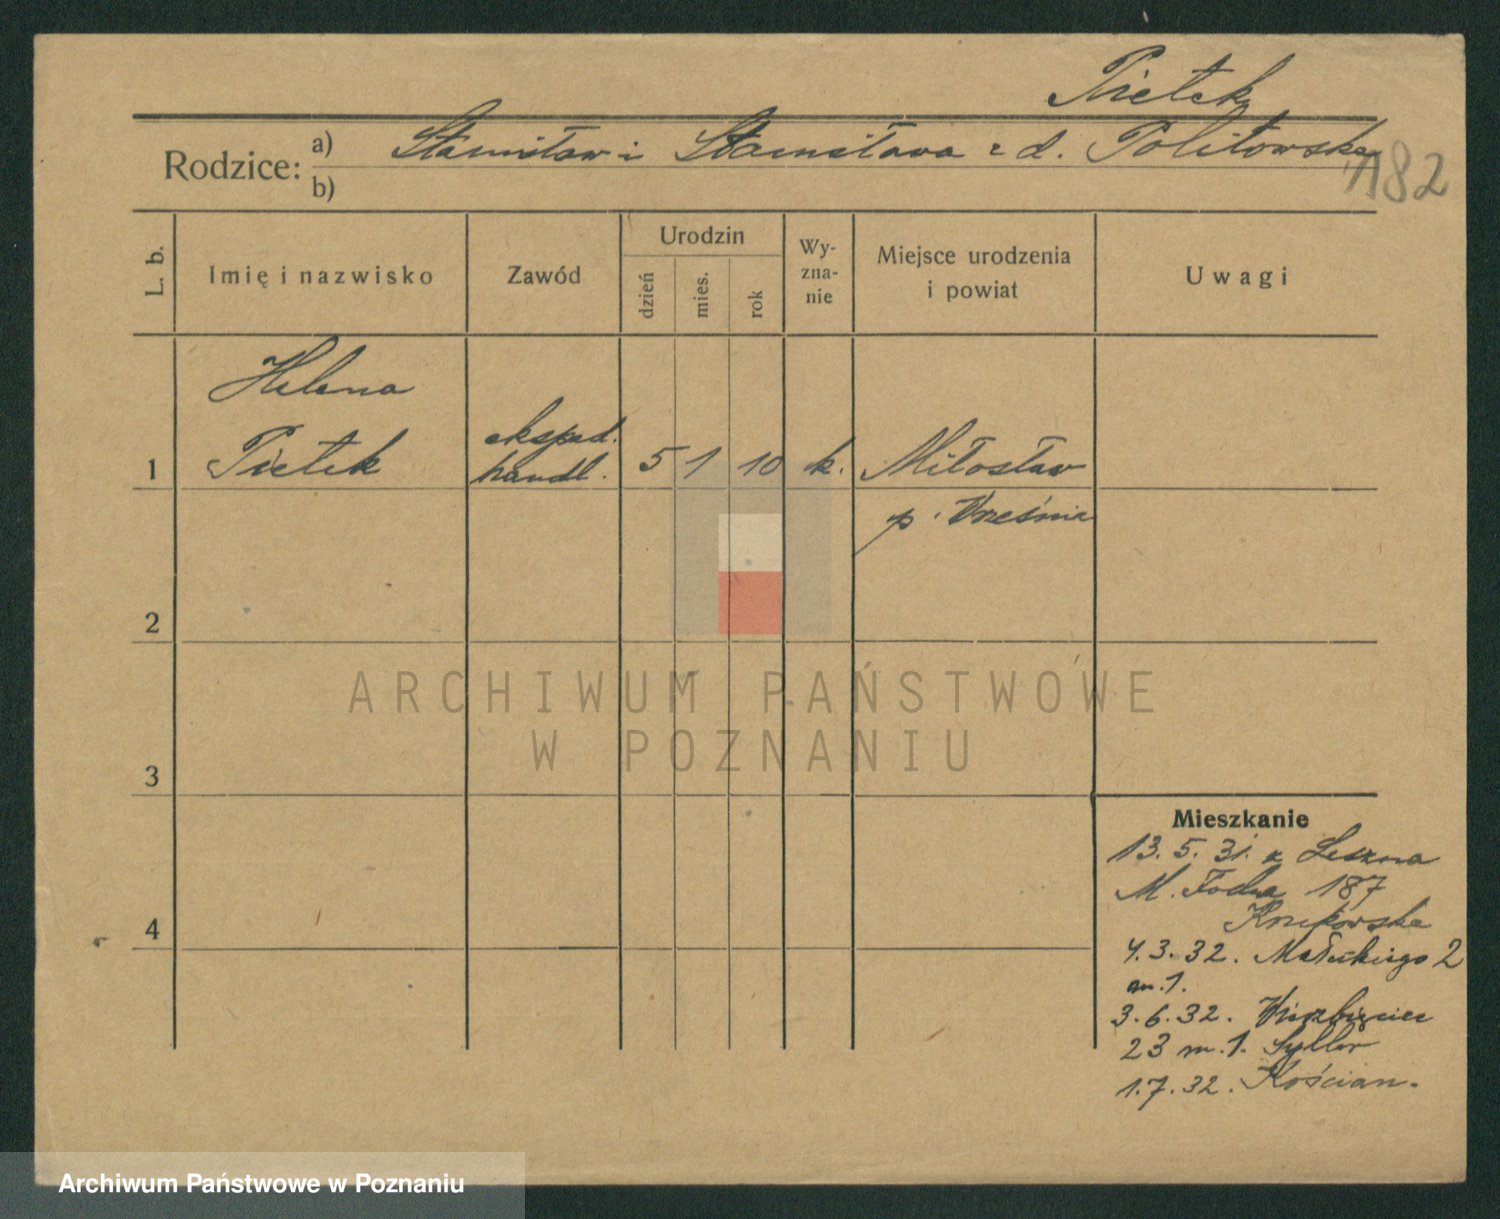 Pietek
Rodzice: a) Stanisław i Stanisława z d. Politowska
b)
182
L. b.
Imię i nazwisko
Zawód
Urodzin
dzień
mies.
rok
Wy-
zna-
nie
Miejsce urodzenia
i powiat
Uwagi
Helena
1 Pietek eksped. handl. 5 1 10 k. Miłosław
p. Września
2
3
4
ARCHIWUM PAŃSTWOWE
W POZNANIU
Mieszkanie
13. 5. 31. z Leszna
M. Focha 187
4. 3. 32. Małeckiego 2
m. 1.
3. 6. 32. Wierzbięcice
23 m. 1. Syller
1. 7. 32. Kościan.
Archiwum Państwowe w Poznaniu